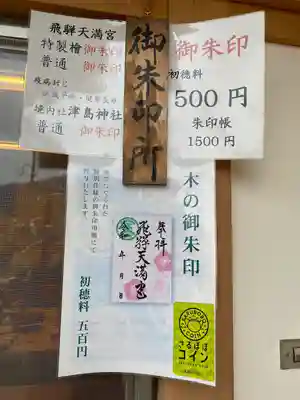 御朱印所
御朱印
初穂料
500円
朱印帳
1500円
飛騨天満宮
特製檜 御朱印
普通 御朱印
境内社 津島神社
普通 御朱印
木の御朱印
奉拝
飛騨天満宮
令和 年 月 日
初穂料 五百円
さるぼぼ
コイン
SARUBOBO
COIN